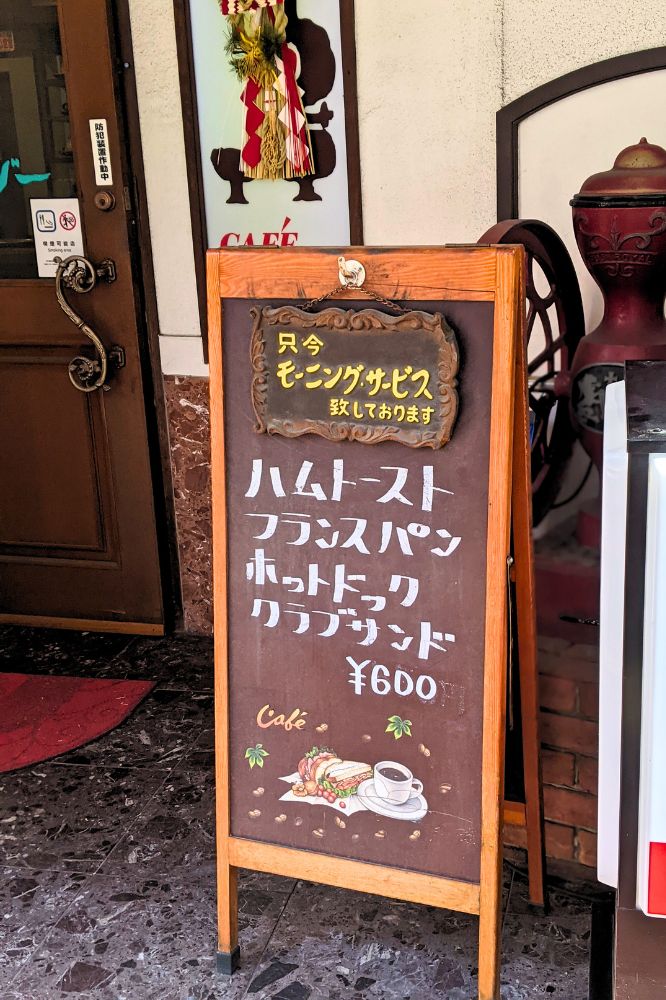 防犯装置作動中
バー
喫煙可能店
Smoking area
CAFÉ
只今
モーニング・サービス
致しております
ハムトースト
フランスパン
ホットドック
クラブサンド
¥600
Café